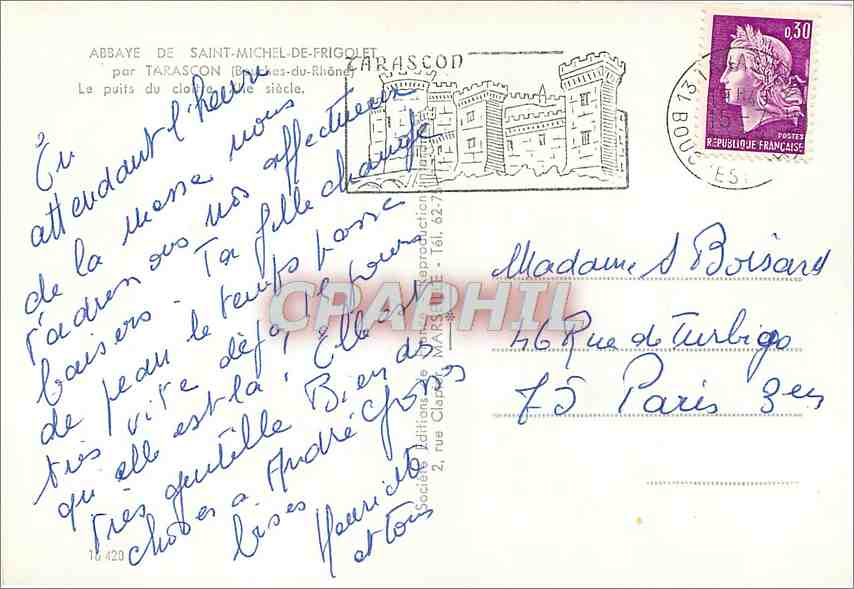 ABBAYE DE SAINT-MICHEL-DE-FRIGOLET
par TARASCON (Bouches-du-Rhône)
Le puits du cloître siècle.
TARASCON
0,30
POSTES
REPUBLIQUE FRANÇAISE
13
BOU
En
attendant l'heure
de la messe nous
t'adressons nos affectueux
baisers - Ta fille change
de peau le temps passe
très vite déjà jours
qu'elle est là ! Elle est
très gentille Bien des
choses à André Gross
bises
Henriette
et tous
Madame S Boisard
46 Rue de Turbigo
75 Paris 3em
Société Editions de Reproduction
2, rue Clapier MARSEILLE - Tél. 62-7
CPAPHIL
16 420